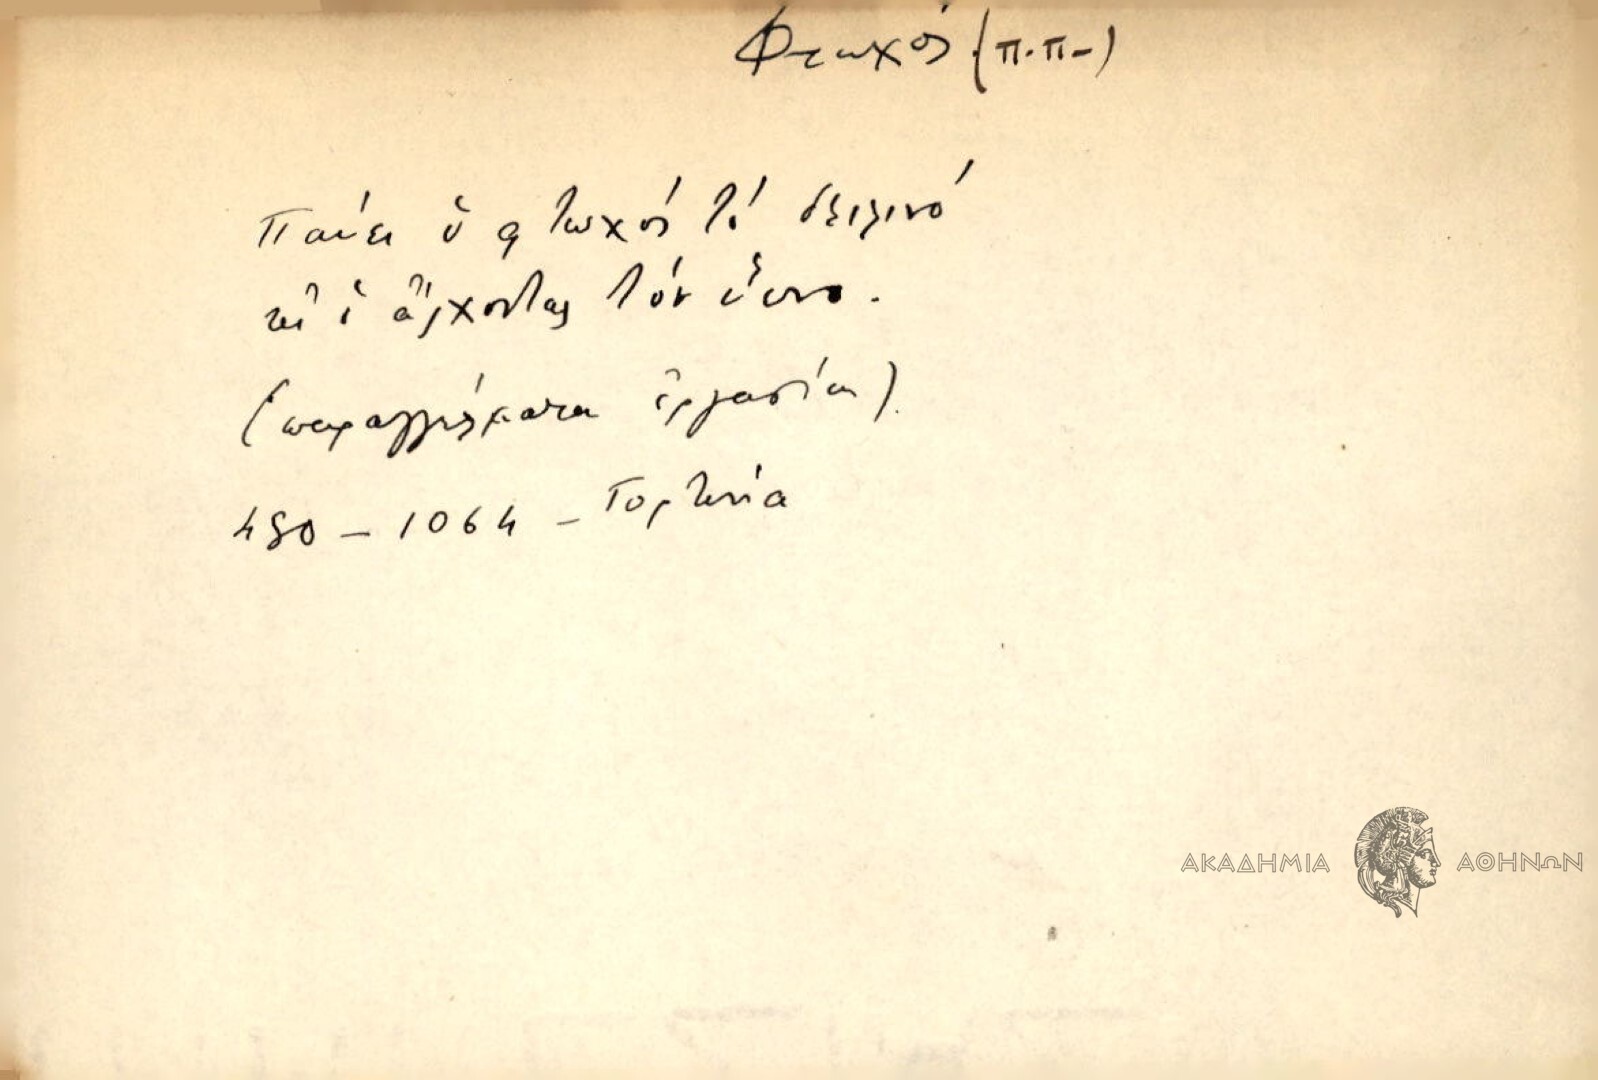 Φτωχός (π.π-)
Παύει ὁ φτωχός τό δειλινό
κι ὁ ἄρχοντας τόν ὕπνο.
(παραγγέλματα ἐργασίας)
480 - 1064 - Γορτυνία
ΑΚΑΔΗΜΙΑ ΑΘΗΝΩΝ